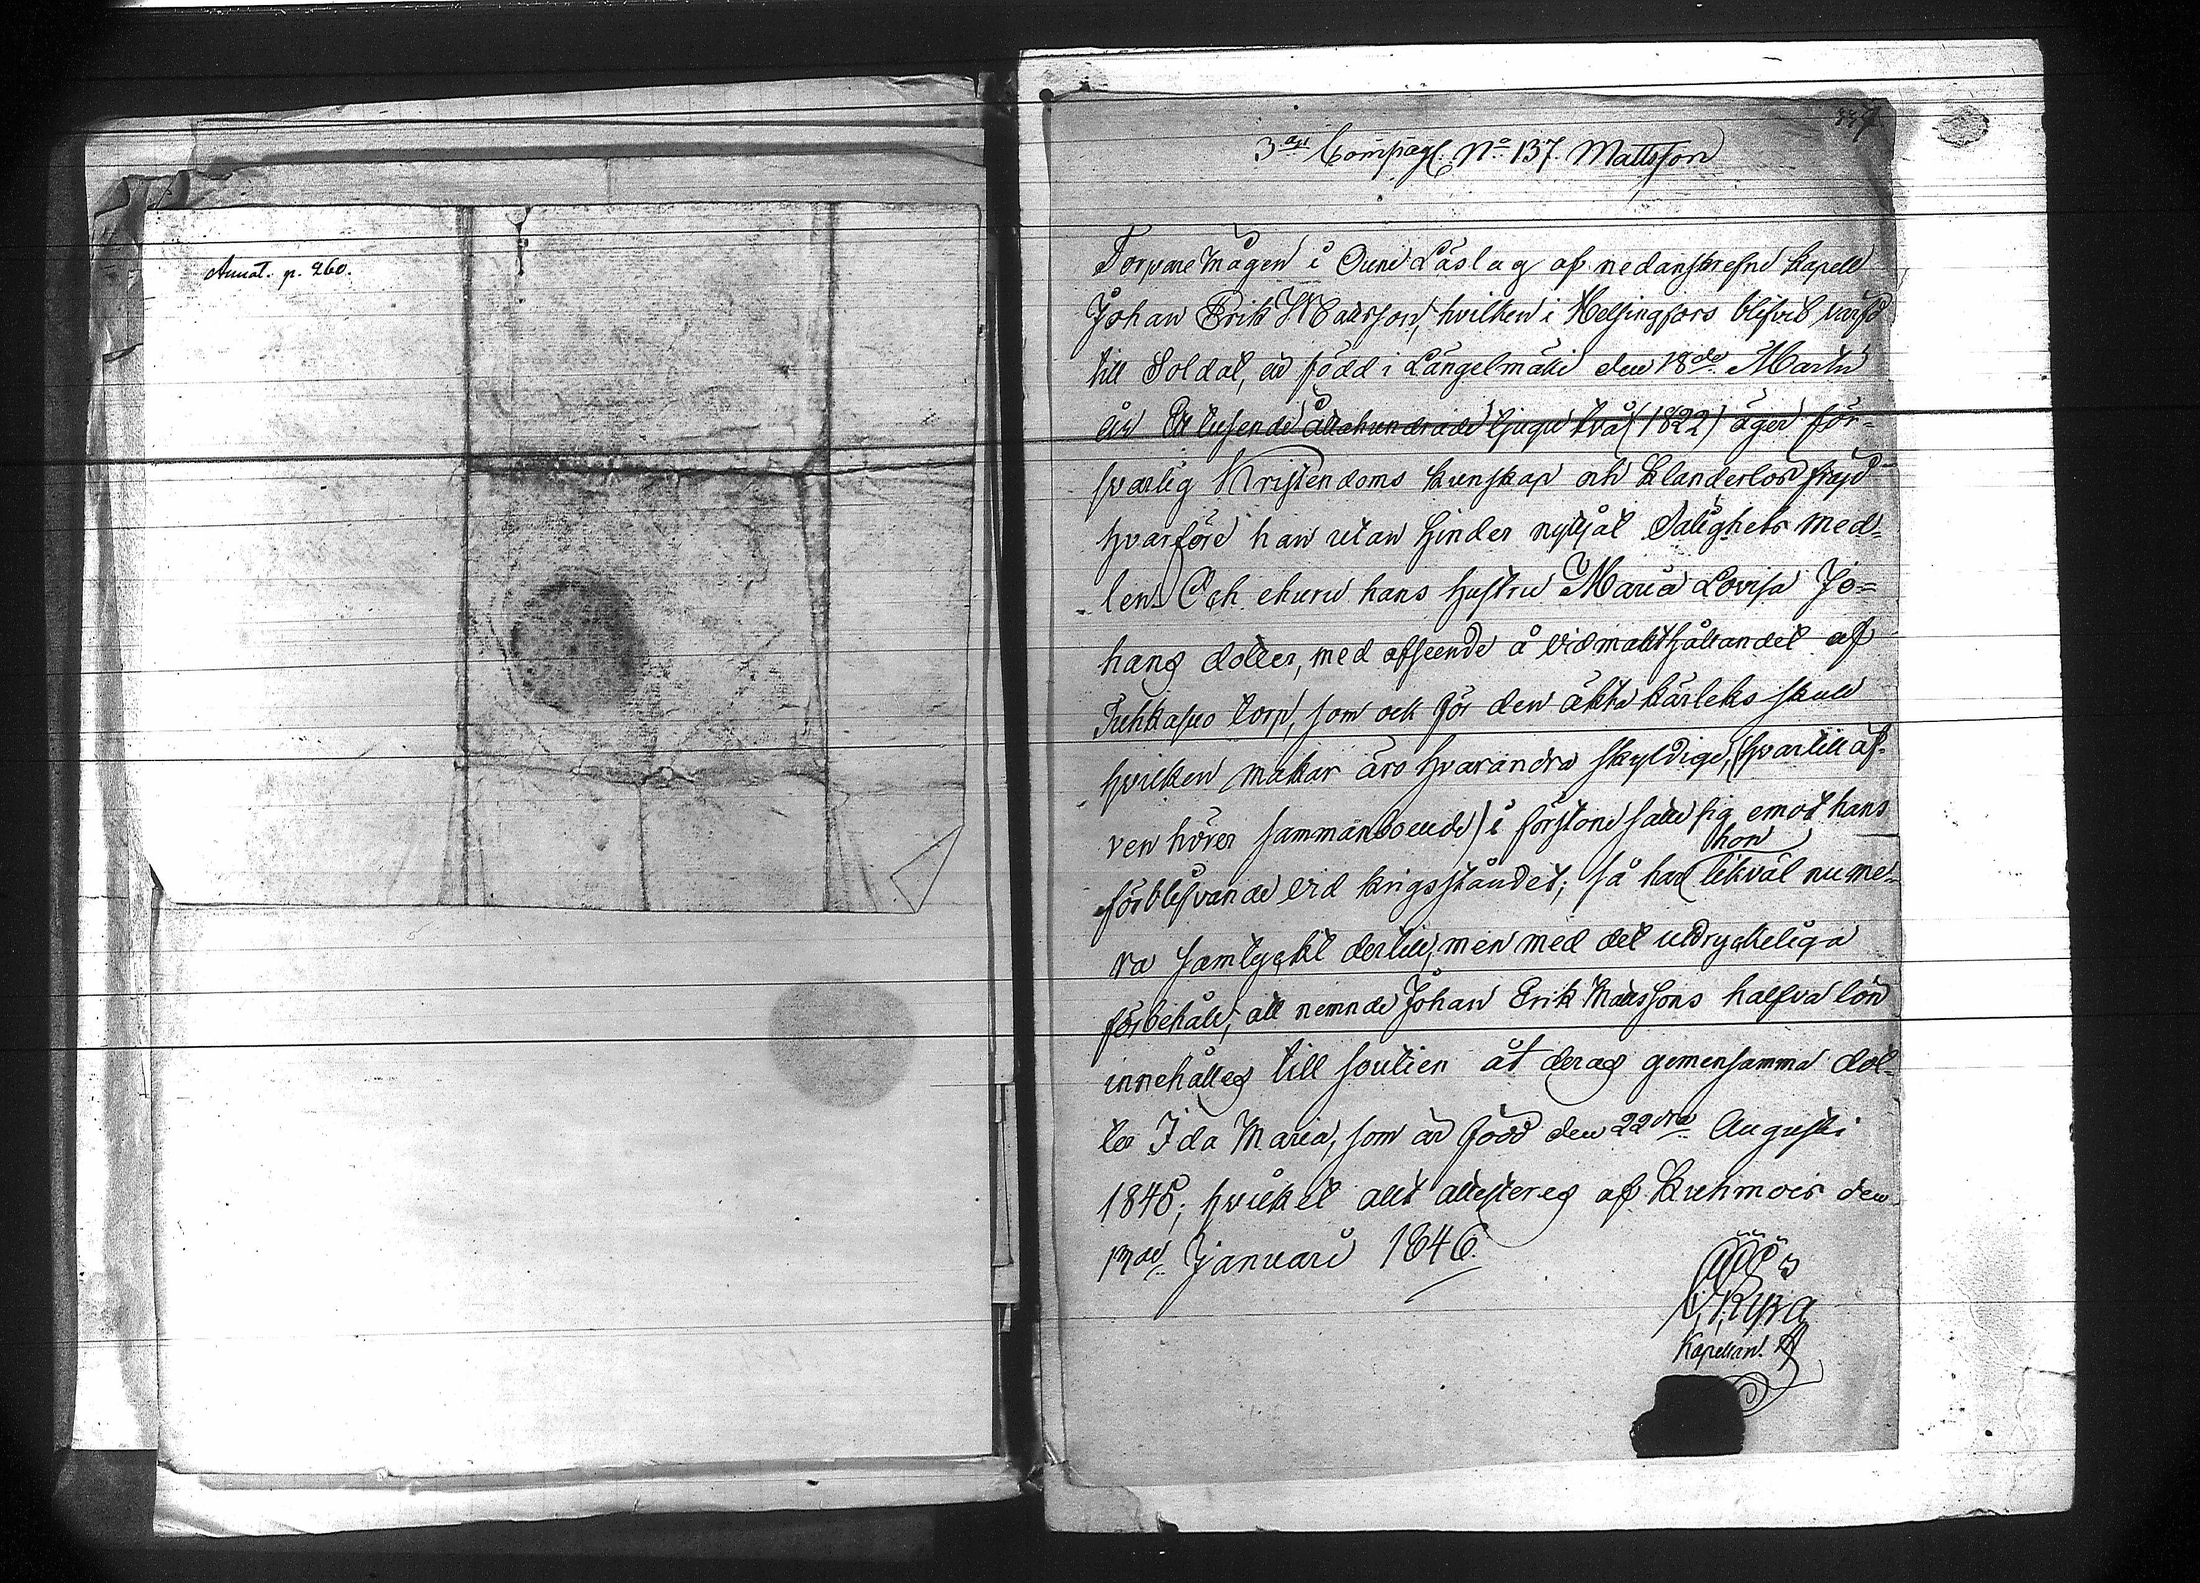 Annot. p. 260.
337
3dje Compagt. No 137. Mattsson
Torpare Mågen i Ouni Läslag af nedanskrefne kapell
Johan Erik Mattsson, hvilken i Helsingfors blifvit
till Soldat, är född i Längelmäki den 18de Martii
år Ett tusende Åttahundrade tjugu två (1822) äger för-
svarlig Kristendoms kunskap och klanderlös frejd
hvarföre han utan hinder nyttjat Salighets med-
len. Och ehuru hans hustru Maria Lovisa Jo-
hans dotter, med afseende å vidmakthållandet af
Tuhkasuo torp, som ock för den äkta kärleks skull
hvilken makar äro hvarandra skyldige, (hvartill äf-
ven hörer sammanboende) i förstone satte sig emot hans
förblifvande vid krigsståndet; så har hon likväl nume-
ra samtyckt dertill, men med det uttryckeliga
förbehåll, att nemnde Johan Erik Mattssons halfva lön
innehålles till soutien åt deras gemensamma dot-
ter Ida Maria, som är född den 22dra Augusti
1845; hvilket allt attesteras af Kuhmois den
Januari 1846.
Kapellan.